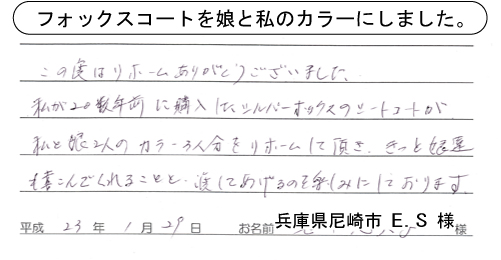 フォックスコートを娘と私のカラーにしました。
この度はリホームありがとうございました。
私が20数年前に購入したシルバーホックスのショートコートが
私と娘2人のカラー3人分をリホームして頂き、きっと娘達
も喜んでくれることと、渡してあげるのを楽しみにしております。
平成 23 年 1 月 29 日 お名前 兵庫県尼崎市 E.S 様